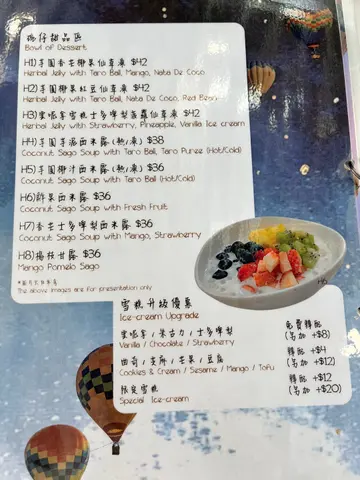 砵仔甜品區
Bowl of Dessert
H1) 芋圓香芒椰果仙草凍 $42
Herbal Jelly with Taro Ball, Mango, Nata De Coco
H2) 芋圓椰果紅豆仙草凍 $42
Herbal Jelly with Taro Ball, Nata De Coco, Red Bean
H3) 雲呢拿雪糕士多啤梨菠蘿仙草凍 $42
Herbal Jelly with Strawberry, Pineapple, Vanilla Ice cream
H4) 芋圓芋泥西米露(熱/凍) $38
Coconut Sago Soup with Taro Ball, Taro Puree (Hot/Cold)
H5) 芋圓椰汁西米露(熱/凍) $36
Coconut Sago Soup with Taro Ball (Hot/Cold)
H6) 鮮果西米露 $36
Coconut Sago Soup with Fresh Fruit
H7) 香芒士多啤梨西米露 $36
Coconut Sago Soup with Mango, Strawberry
H8) 楊枝甘露 $36
Mango Pomelo Sago
The above images are for presentation only
H6
雪糕升級優惠
Ice-cream Upgrade
雲呢拿 / 朱古力 / 士多啤梨 免費轉配
Vanilla / Chocolate / Strawberry (另加 +$8)
曲奇 / 芝麻 / 芒果 / 豆腐 轉配 +$4
Cookies & Cream / Sesame / Mango / Tofu (另加 +$12)
限定雪糕 轉配 +$12
Special Ice-cream (另加 +$20)